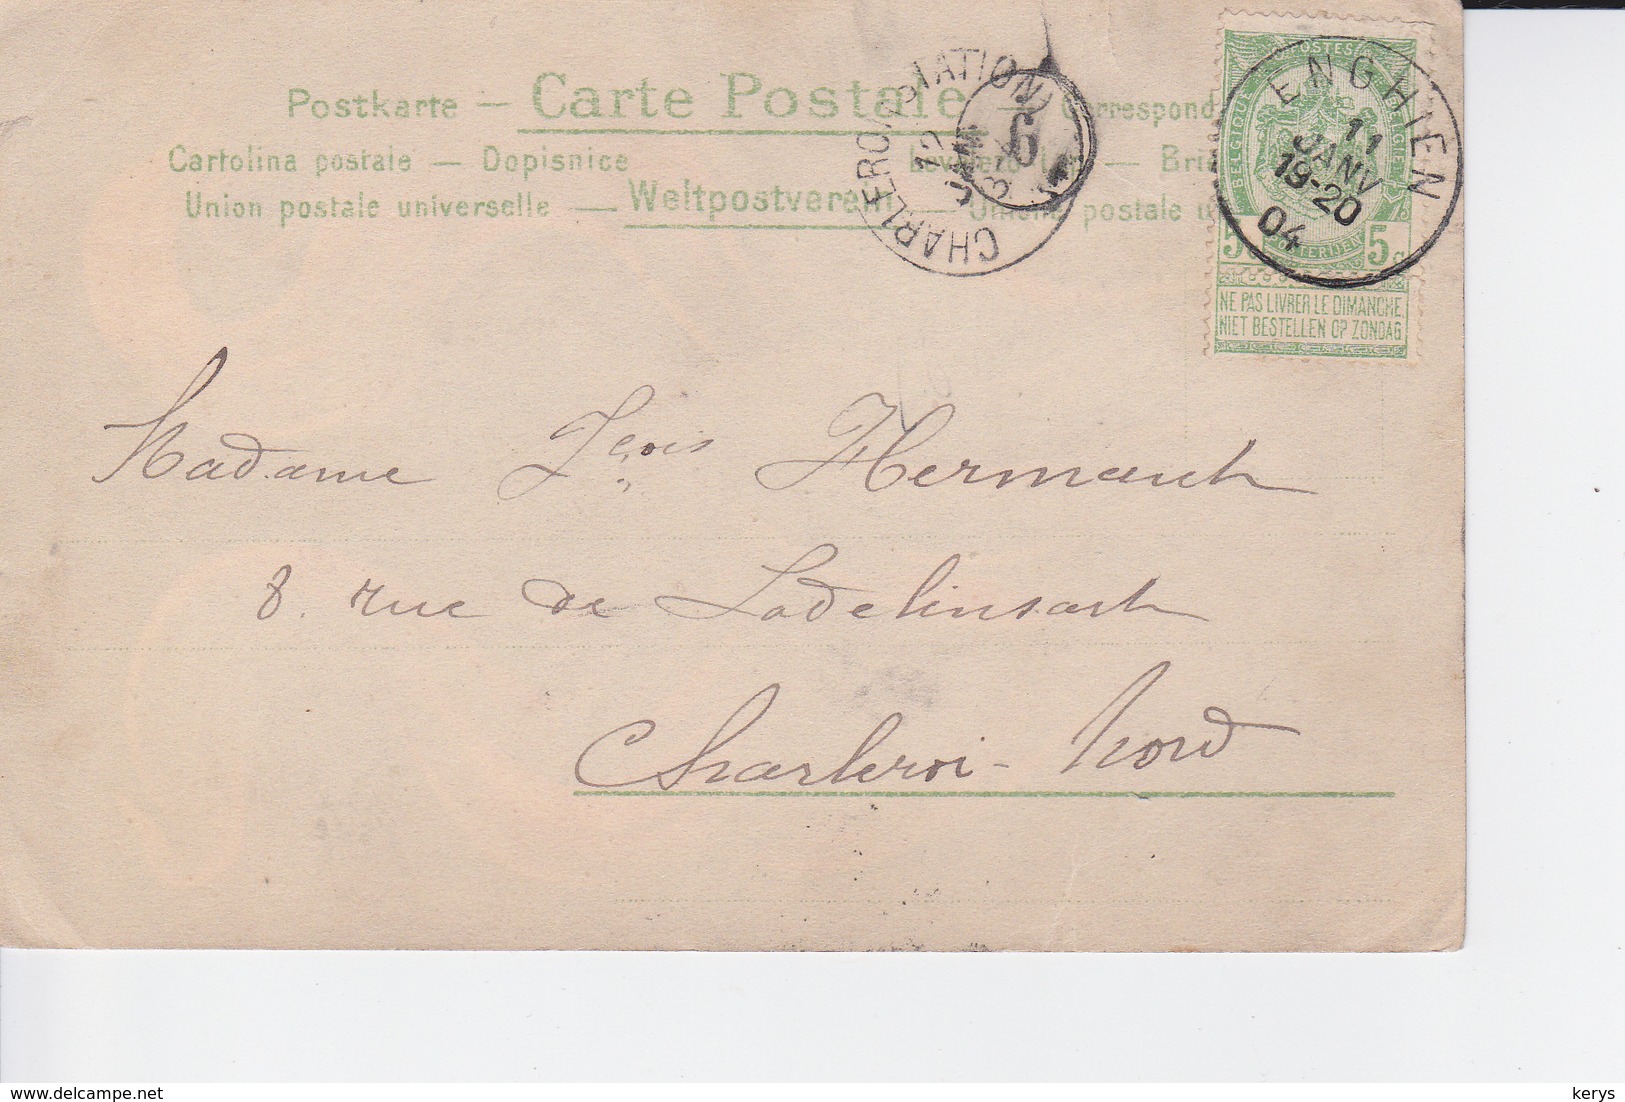 Postkarte — Carte Postale — Correspond
Cartolina postale — Dopisnice — Levelező Lap — Bri
Union postale universelle — Weltpostverein — Unione postale u
CHARLEROI (STATION)
12
JANV
8
6
POSTES
BELGIQUE
BELGIË
POSTERIJEN
5 5 c
NE PAS LIVRER LE DIMANCHE
NIET BESTELLEN OP ZONDAG
ENGHIEN
11
JANV
19-20
04
Madame Hermanch
8. rue de Lodelinsart
Charleroi - Nord
delcampe.net
kerys